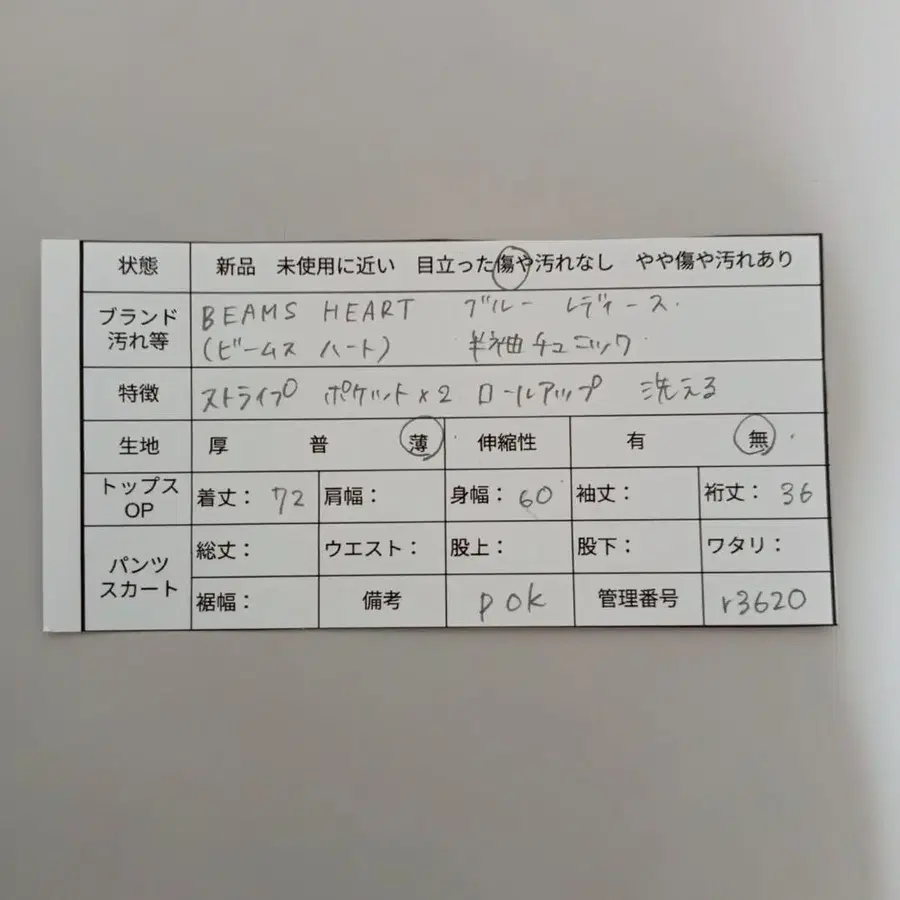 状態 新品 未使用に近い 目立った傷や汚れなし やや傷や汚れあり
ブランド BEAMS HEART ブルー レディース.
汚れ等 (ビームス ハート) 半袖チュニック
特徴 ストライプ ポケット×2 ロールアップ 洗える
生地 厚 普 薄 伸縮性 有 無
トップス OP 着丈: 72 肩幅: 身幅: 60 袖丈: 裄丈: 36
パンツ スカート 総丈: ウエスト: 股上: 股下: ワタリ:
裾幅: 備考 pok 管理番号 r3620